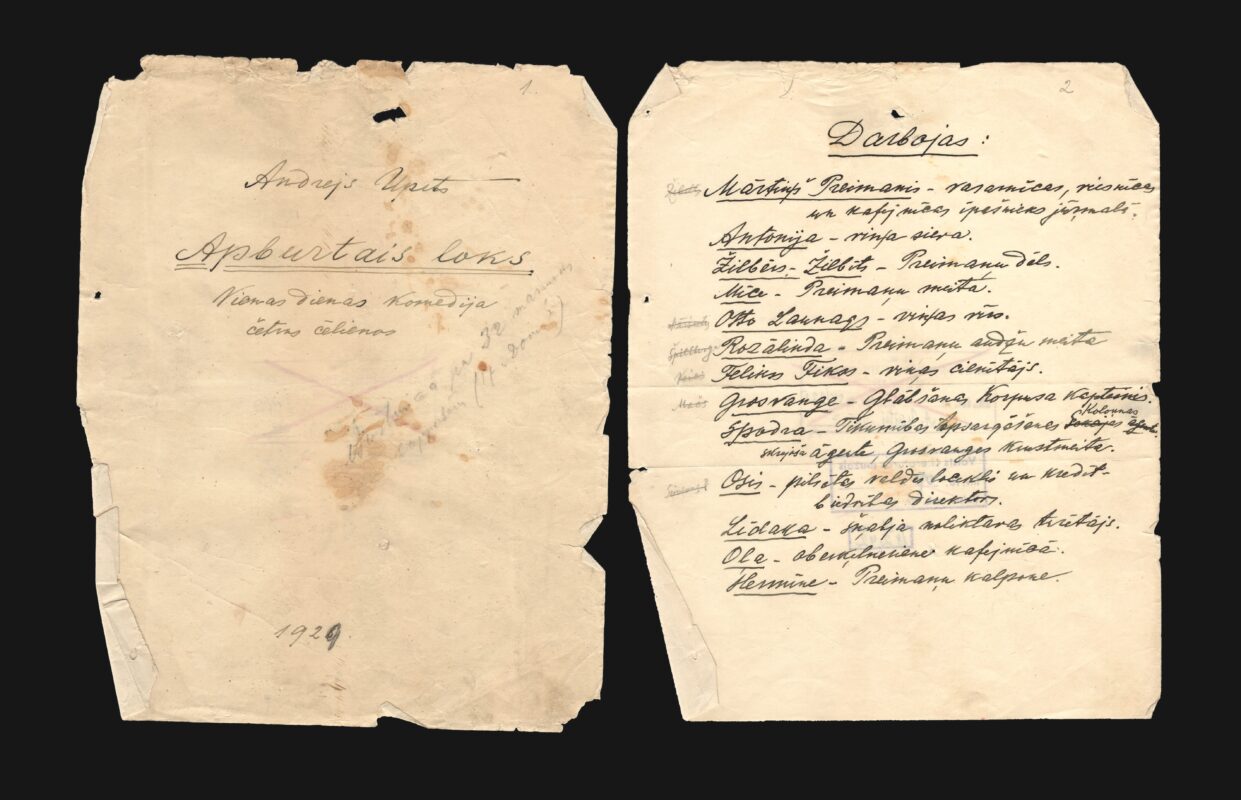 1.
Andrejs Upīts
Apburtais loks
Vienas dienas komēdija
četros cēlienos
1929.
2
Darbojas:
Mārtiņš Preimanis – vasarnīcas, viesnīcas
un kafejnīcas īpašnieks jūrmalā.
Antonija – viņa sieva.
Žilbērs-Žilbīts – Preimaņu dēls.
Mice – Preimaņu meita.
Otto Launags – viņas vīrs.
Rozālinda – Preimaņu audžu meita
Fēlikss Fikos – viņas cienītājs.
Grosvange – Glābšanas Korpusa kapteinis.
Kolonnas
Spodra – Tikumības Apsargāšanas
āgente, Grosvanges krustmeita.
Osis – pilsētas valdes loceklis un kredit-
biedrības direktors.
Līdaka – šņabja noliktavas turētājs.
Ola – oberķelneriene kafejnīcā.
Hermīne – Preimaņu kalpone.